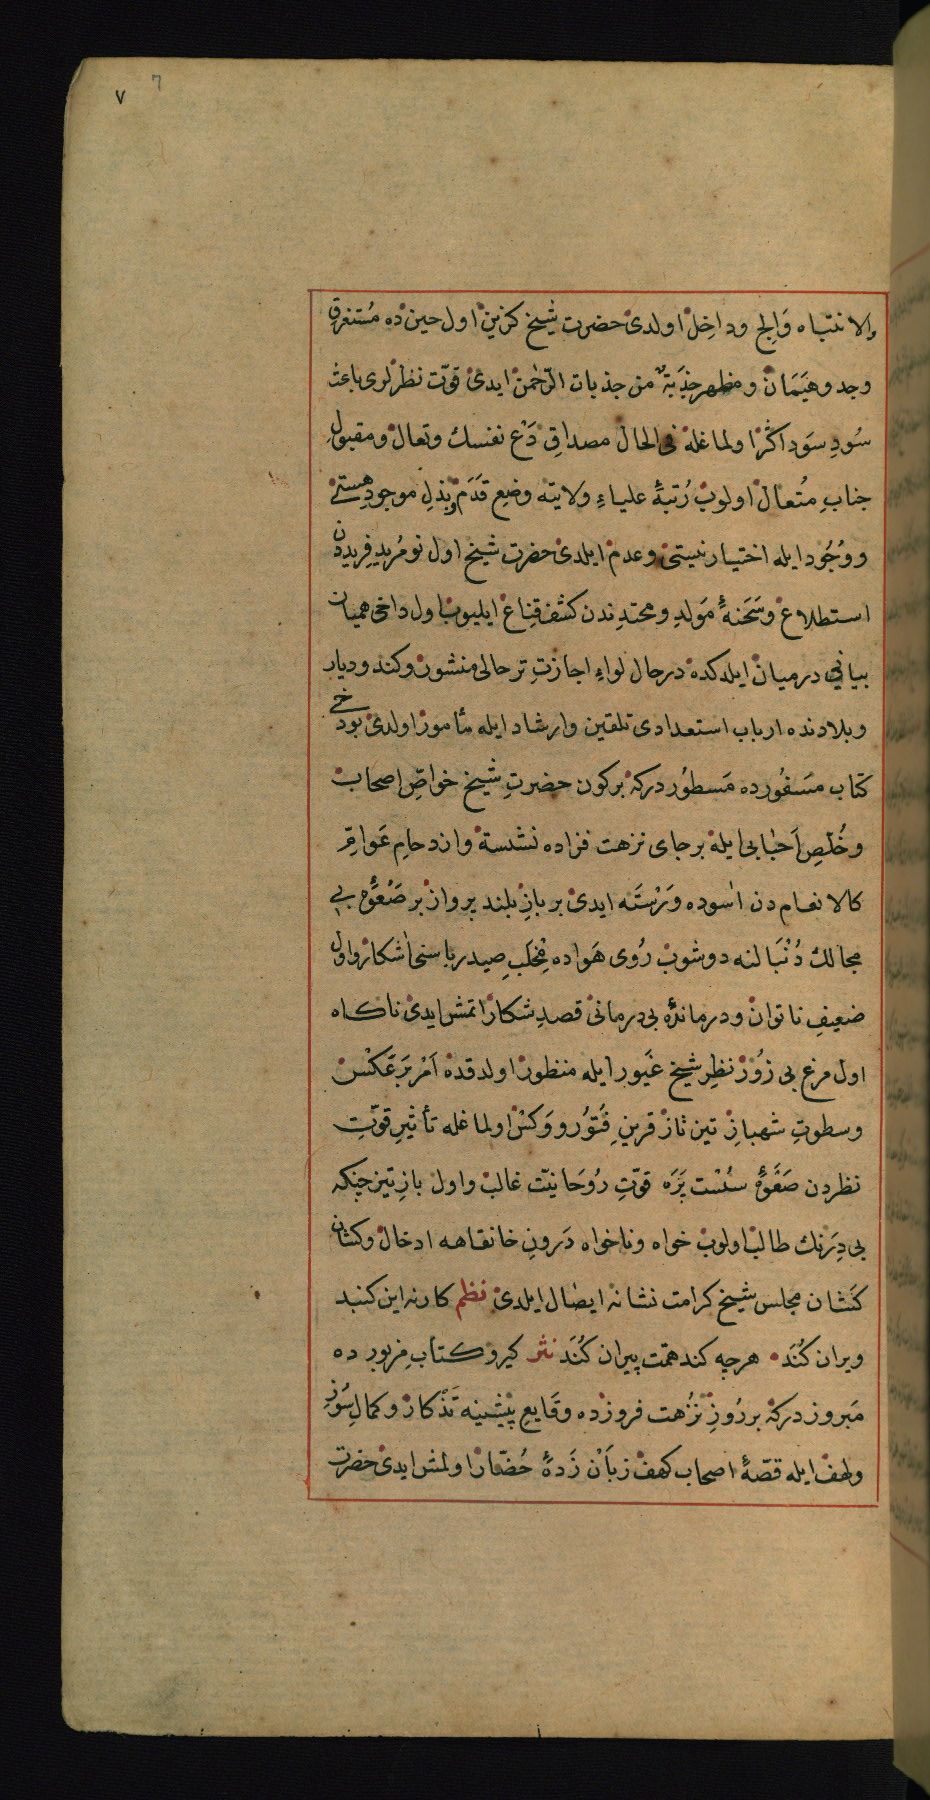 7
٧
والانتباه وَالِج وداخِل اولدی حضرت شیخ كزین اول حین ده مُستغرق
وجد وهَیَمَان ومظهر جذبةٌ من جذبات الرّحمن ایدی قوّت نظرلری باعث
سُودِ سَوداكَر اولماغله فی الحال مصداقِ دَعْ نفسك وتعال ومقبولِ
جنابِ مُتعال اولوب رُتبهٔ علیاءِ ولایته وضعِ قَدَم وبذلِ موجودِ هستئ
ووُجُود ایله اختیار نیستی وعدم ایلدی حضرت شیخ اول نو مُریدِ فریددن
استطلاع وسَحَنهٔ مَولدِ ومحتدِندن كشف قِناع ایلیوب اول داخی همیان
بیانی درمیان ایلدكده درحال لواءِ اجازتِ ترحالی منشون وكند ودیار
وبلادنده ارباب استعدادی تلقین وارشاد ایله مأمور اولدی بو دخی
كتاب مسَفُورده مَسطوُردركه بركون حضرتِ شیخ خواصِّ اصحاب
وخُلّصِ اَحبابی ایله برجای نزهت فزاده نشسته وازدحامِ عَوامّ
كالانعام دن اٰسوده وَرَسْتَه ایدی بر بازِ بلند پرواز بر صَعْوَهٔ بی
مجالك دُنْبَالنه دوشوب رُوی هَواده مِخلَبِ صیدرباسنی اٰشكار واول
ضعیفِ ناتوان ودرماندهٔ بی درمانی قصدِ شكار اتمش ایدی ناكاه
اول مرغ بی زُوْر نظرِ شیخ غَیور ایله منظور اولدقده اَمْر بَرعَكْسْ
وسطوتِ شهبازِ تیزتاز قرینِ فُتوُر ووَكسْ اولماغله تأثیرِ قوّتِ
نظردن صَعْوَهٔ سُسْت پَرَه قوّتِ رُوحَانیّت غالب واول بازِ تیزچنكه
بی دِرَنك طالب اولوب خواه وناخواه دَرونِ خانقاهه ادخال وكشان
كَشان مجلس شیخ كرامت نشانه ایصال ایلدی نظم كارنه این كنبد
ویران كُنَد هرچه كند همّت پیران كُنَد نثر كیرو كتاب مزبورده
مَبروزدركه بر رُوزِ نُزْهت فروزده وقَایعِ پیشینه تَذْكار وكمالِ سُوزِ
ولهف ایله قصّهٔ اصحاب كهف زبَانْ زَدهٔ حُضّار اولمش ایدی حضرت